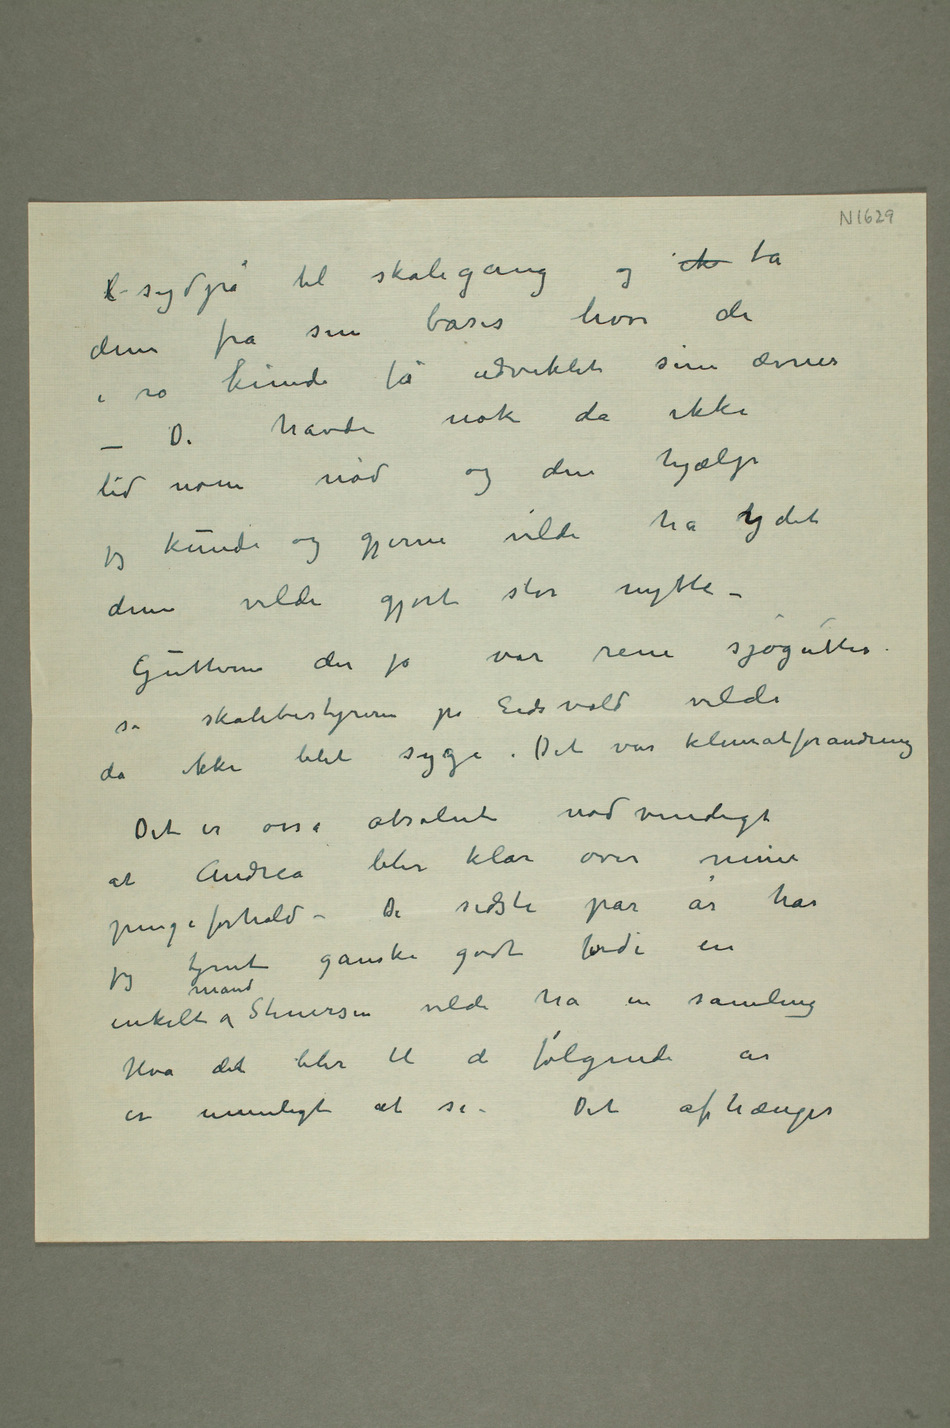 N1629
sydpå til skolegang og ta
dem fra sin basis hvor de
i ro kunde få udviklet sine ævner
– De havde nok da ikke
lid noen nød og den hjælp
jeg kunde og gjerne vilde ha ydet
dem vilde gjort stor nytte –
Guttene der jo var rene sjøgutter
sa skolebestyreren på Eidsvold vilde
da ikke blit syge. Det var klimatforandring
Det er også absolut nødvendigt
at Andrea blir klar over mine
pengeforhold – De sidste par år har
jeg tjent ganske godt fordi en
mand
enkelt Stenersen vilde ha en samling
Hva det blir til de følgende år
er umuligt at si – Det afhænger